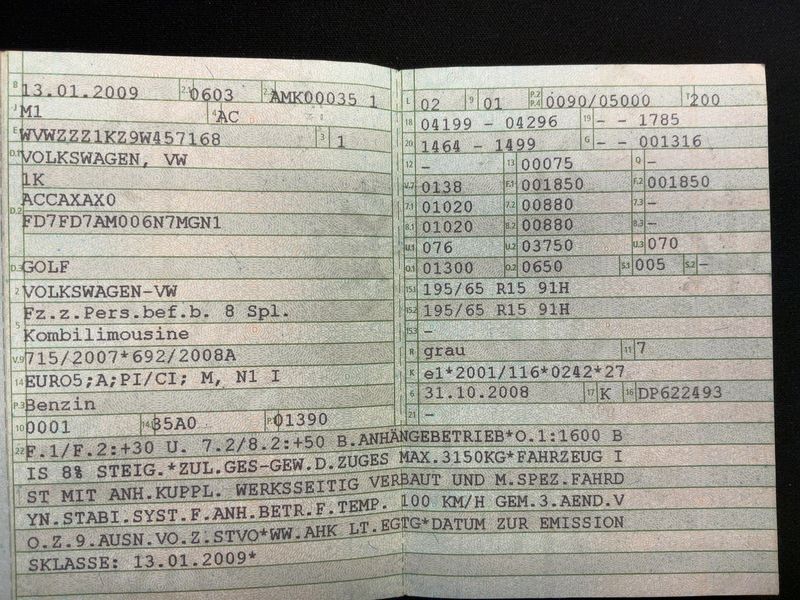 B 13.01.2009 2.1 0603 2.2 AMK00035 1
J M1 4 AC
E WVWZZZ1KZ9W457168 3 1
D.1 VOLKSWAGEN, VW
1K
D.2 ACCAXAX0
FD7FD7AM006N7MGN1
D.3 GOLF
2 VOLKSWAGEN-VW
5 Fz.z.Pers.bef.b. 8 Spl.
Kombilimousine
V.9 715/2007*692/2008A
14 EURO5;A;PI/CI; M, N1 I
P.3 Benzin
10 0001 14.1 35A0 P.1 01390
L 02 9 01 P.2 P.4 0090/05000 T 200
18 04199 - 04296 19 - - 1785
20 1464 - 1499 G - - 001316
12 - 13 00075 Q -
V.7 0138 F.1 001850 F.2 001850
7.1 01020 7.2 00880 7.3 -
8.1 01020 8.2 00880 8.3 -
U.1 076 U.2 03750 U.3 070
O.1 01300 O.2 0650 S.1 005 S.2 -
15.1 195/65 R15 91H
15.2 195/65 R15 91H
15.3 -
R grau 11 7
K e1*2001/116*0242*27
6 31.10.2008 17 K 16 DP622493
21 -
22 F.1/F.2:+30 U. 7.2/8.2:+50 B.ANHÄNGEBETRIEB*O.1:1600 B
IS 8% STEIG.*ZUL.GES-GEW.D.ZUGES MAX.3150KG*FAHRZEUG I
ST MIT ANH.KUPPL. WERKSSEITIG VERBAUT UND M.SPEZ.FAHRD
YN.STABI.SYST.F.ANH.BETR.F.TEMP. 100 KM/H GEM.3.AEND.V
O.Z.9.AUSN.VO.Z.STVO*WW.AHK LT.EGTG*DATUM ZUR EMISSION
SKLASSE: 13.01.2009*